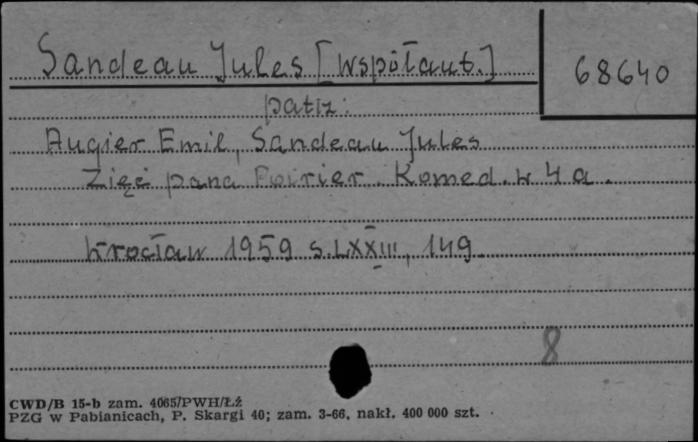 Sandeau Jules [współaut.]
68640
patrz:
Augier Emil, Sandeau Jules
Zięć pana Poirier. Komed. w 4 a.
Wrocław 1959 s. LXXIII, 149.
8
CWD/B 15-b zam. 4065/PWH/Łź
PZG w Pabianicach, P. Skargi 40; zam. 3-66, nakł. 400 000 szt.